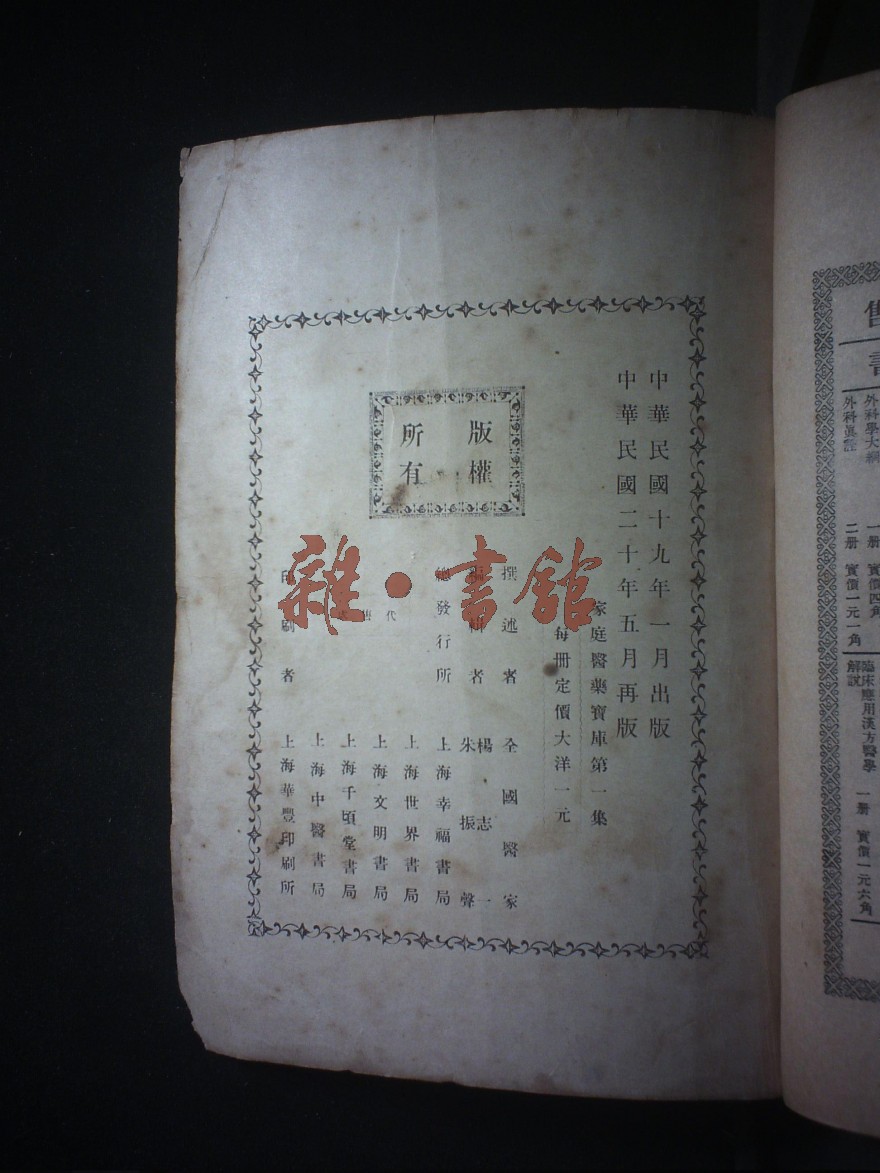 中華民國十九年一月出版
中華民國二十年五月再版
家庭醫藥寶庫第一集
每冊定價大洋一元
版權
所有
撰述者 全國醫家
編輯者 楊志一
朱振聲
總發行所 上海幸福書局
代售處
上海世界書局
上海文明書局
上海千頃堂書局
上海中醫書局
印刷者 上海華豐印刷所
雜·書館
售書
外科學大綱 一册 實價四角
外科眞詮 二册 實價一元一角
臨床應用漢方醫學
解説 一册 實價一元六角